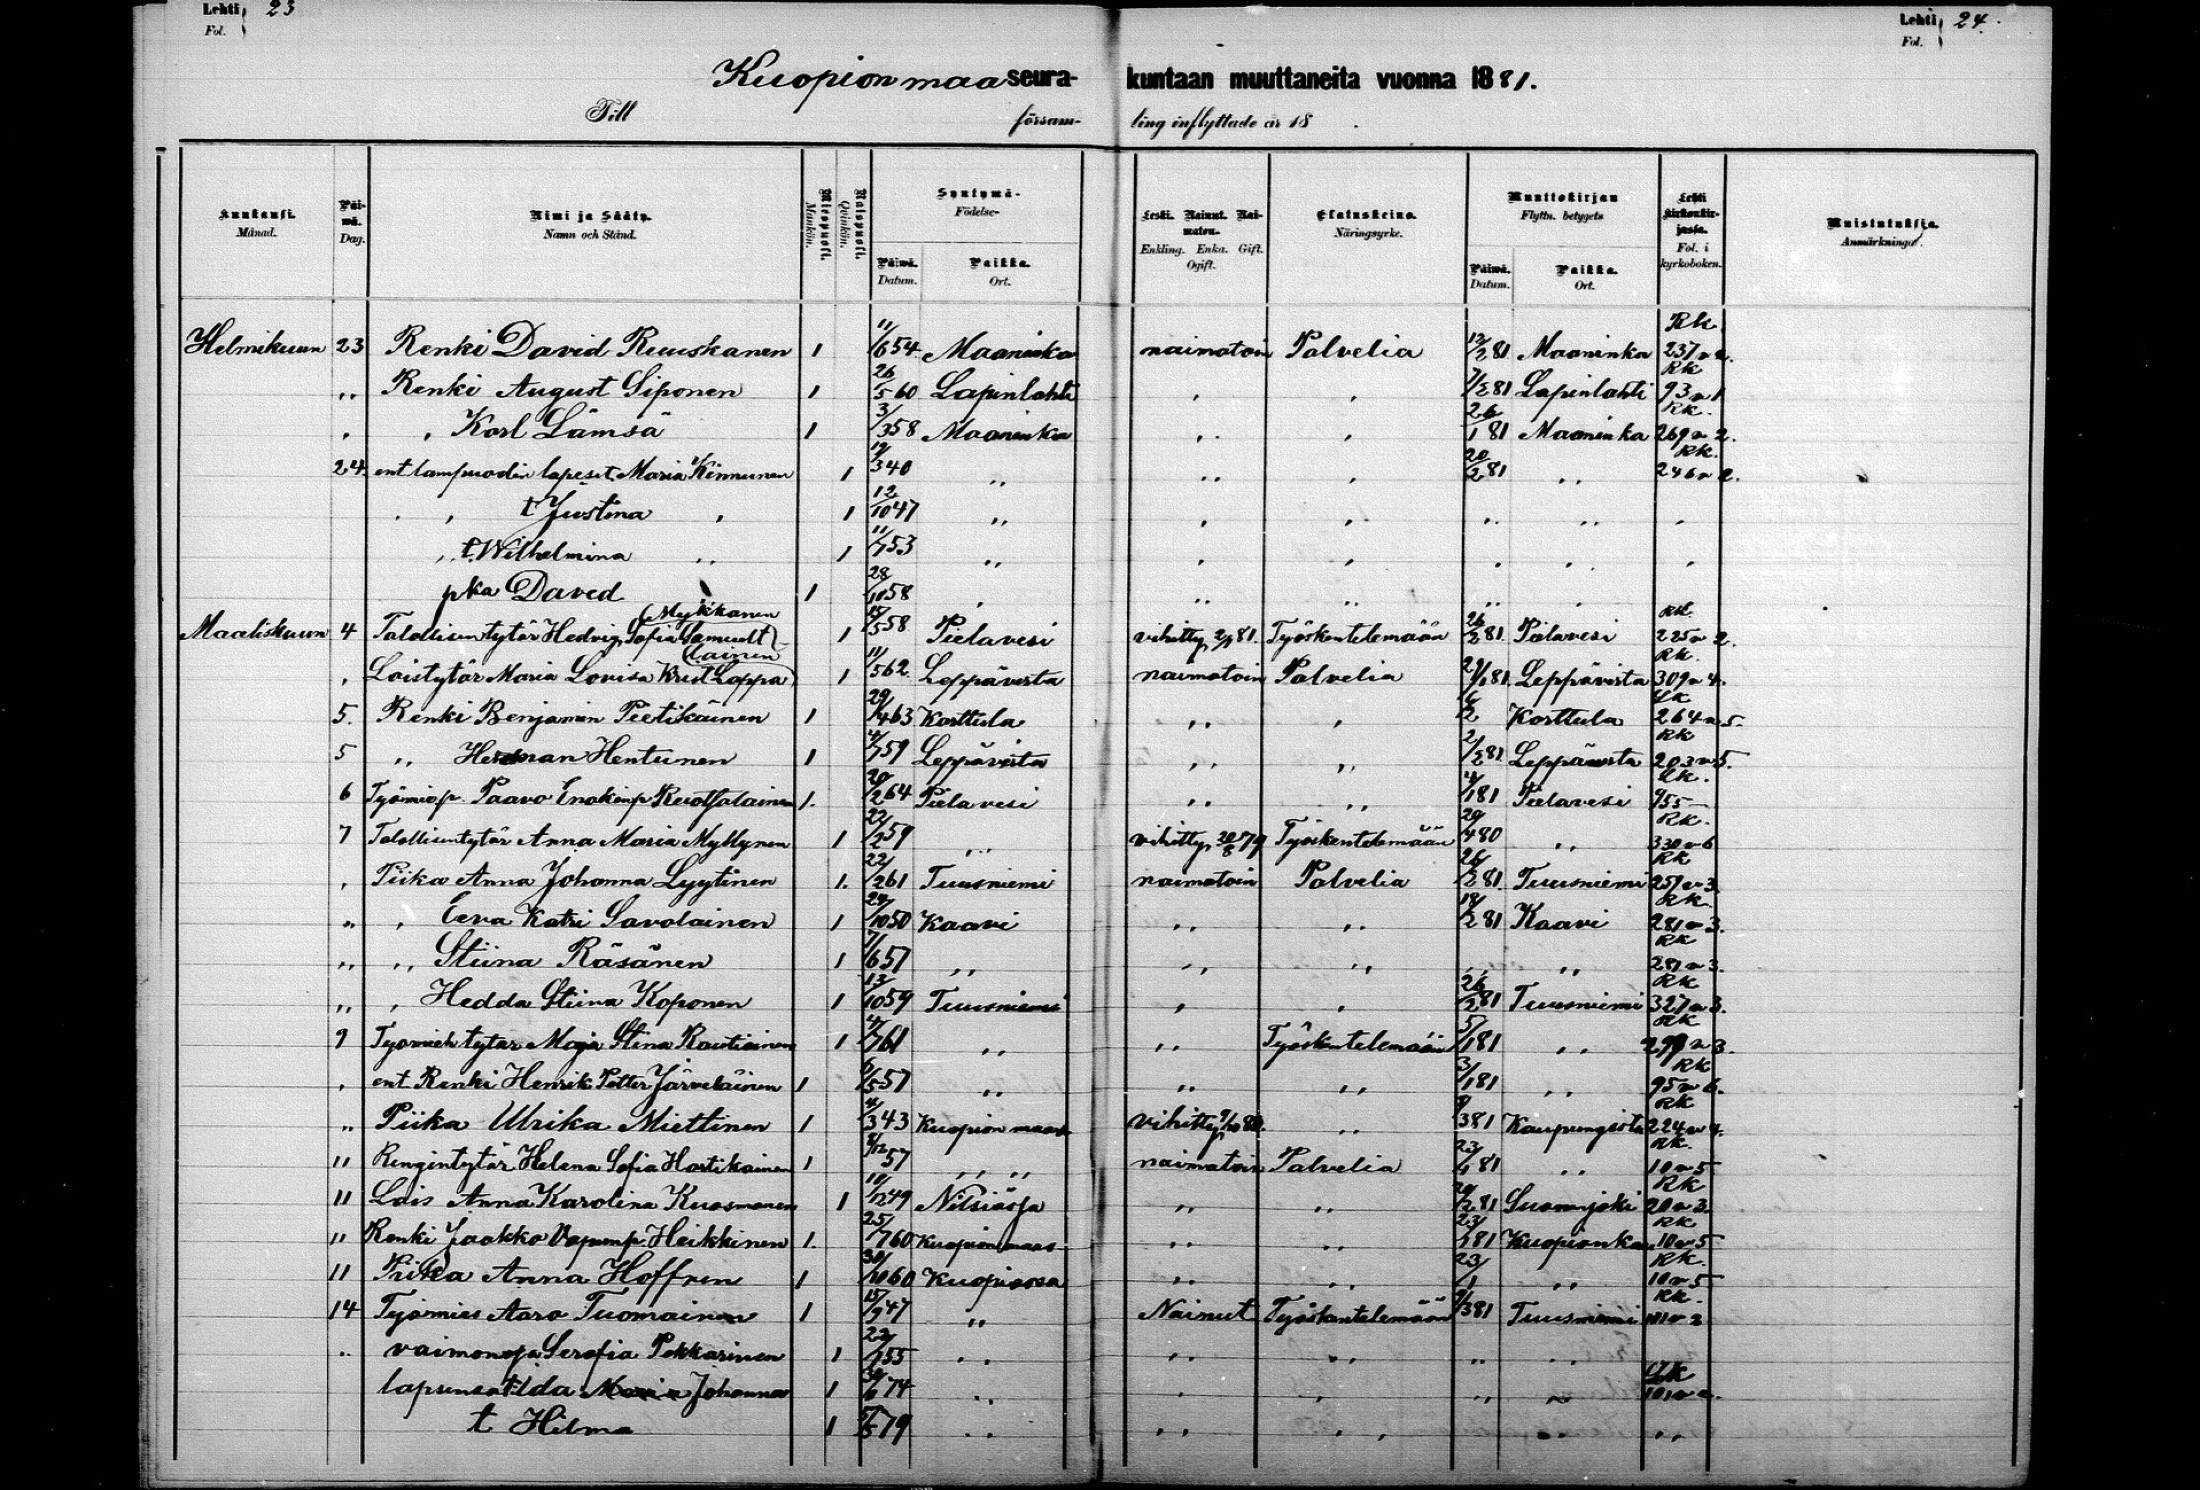 Lehti 23 Lehti 24.
Fol. Fol.
Kuopion maa seura- kuntaan muuttaneita vuonna 1881.
Till försam- ling inflyttade år 18 .
Kuukausi. Månad. Päiwä. Dag. Nimi ja Sääty. Namn och Stånd. Miespuoli. Mankön. Naispuoli. Qvinkön. Syntymä- Födelse- Päiwä. Datum. Paikka. Ort. Leski. Nainut. Naimaton. Enkling. Enka. Gift. Ogift. Elatuskeino. Näringsyrke. Muuttokirjan Flyttn. betygets Päiwä. Datum. Paikka. Ort. Lehti kirkonkirjassa. Fol. i kyrkoboken. Muistutuksia. Anmärkningar.
Helmikuun 23 Renki David Ruuskanen 1 11/6 54 Maaninka naimatoin Palvelia 12/2 81 Maaninka Rk 237 n 2.
„ Renki August Siponen 1 26/5 60 Lapinlahti „ „ 7/2 81 Lapinlahti Rk 93 n 1
„ „ Karl Lämsä 1 3/3 58 Maaninka „ „ 26/1 81 Maaninka Rk. 269 n 2.
24. ent lampuodin lapset Maria Kinnunen 1 19/3 40 „ „ „ 20/2 81 „ Rk. 246 n 2.
„ „ t Justina „ 1 12/10 47 „ „ „ „ „ „
„ t. Wilhelmina „ 1 11/7 53 „ „ „ „ „ „
pka David 1 28/10 58 „ „ „ „ „
Mykkanen
Maaliskuun 4 Talollisen tytär Hedvig Sofia Samuelt 1 15/5 58 Pielavesi vihitty 2/1 81. Työskentelemään 26/2 81 Pielavesi Rk. 225 n 2.
lainen
„ Loistytär Maria Lovisa Krist Lappa 1 11/5 62 Leppävirta naimatoin Palvelia 29/1 81. Leppävirta Rk. 309 n 4.
5. Renki Benjamin Pietikäinen 1 29/4 63 Karttula „ „ 6/2 Karttula Lk 264 n 5.
5 „ Herman Hentunen 1 4/7 59 Leppävirta „ „ 2/2 81 Leppävirta Rk 203 n 5.
6 Työmiesp. Paavo Enokinp Ruotsalainen 1. 20/2 64 Pielavesi „ „ 4/1 81 Pielavesi Lk. 955
7 Talollisentytär Anna Maria Myllynen 1 22/2 59 „ vihitty 20/8 79 Työskentelemään 29/4 80 „ Rk. 330 n 6
„ Piika Anna Johanna Lyytinen 1. 22/2 61 Tuusniemi naimatoin Palvelia 26/2 81. Tuusniemi Rk 259 n 3.
„ „ Eeva Katri Savolainen 1 29/10 50 Kaavi „ „ 18/2 81 Kaavi Rk. 281 n 3.
„ „ Stiina Räsänen 1 7/6 57 „ „ „ „ „ Rk 281 n 3.
„ „ Hedda Stiina Koponen 1 13/10 59 Tuusniemi „ „ 26/2 81 Tuusniemi Rk 327 n 3.
9 Työmieh tytär Maja Stina Rautiainen 1 4/7 61 „ „ Työskentelemään 5/1 81 „ Rk n 3.
„ ent Renki Henrik Petter Järveläinen 1 6/5 57 „ „ „ 3/1 81 „ Rk 95 n 6.
„ Piika Ulrika Miettinen 1 4/3 43 Kuopion maas vihitty „ 9/3 81 Kaupungista Rk 224 n 4.
11 Rengintytär Helena Sofia Hartikainen 1 8/12 57 „ „ naimatoin Palvelia 23/1 81 „ Rk. 10 n 5
11 Lois Anna Karolina Kuosmanen 1 10/12 49 Nilsiässä „ „ 20/2 81 Suonenjoki Rk 20 n 3.
„ Renki Jaakko Vapunp. Heikkinen 1. 25/7 60 Kuopion maas „ „ 23/1 81 Kuopionka Rk 10 n 5
11 Piika Anna Hoffren 1 30/10 60 Kuopiossa „ „ 23/1 „ Rk. 10 n 5
14 Työmies Aaro Tuomainen 1 15/9 47 „ Nainut Työskentelemään 9/3 81 Tuusniemi Rk. 101 n 2
„ vaimonsa Serafia Pekkarinen 1 22/1 55 „ „ „ „ „
lapsensa t Ida Maria Johanna 1 30/11 74 „ „ „ „ „ Lk 101 n 2.
t Hilma 1 5/5 79 „ „ „ „ „